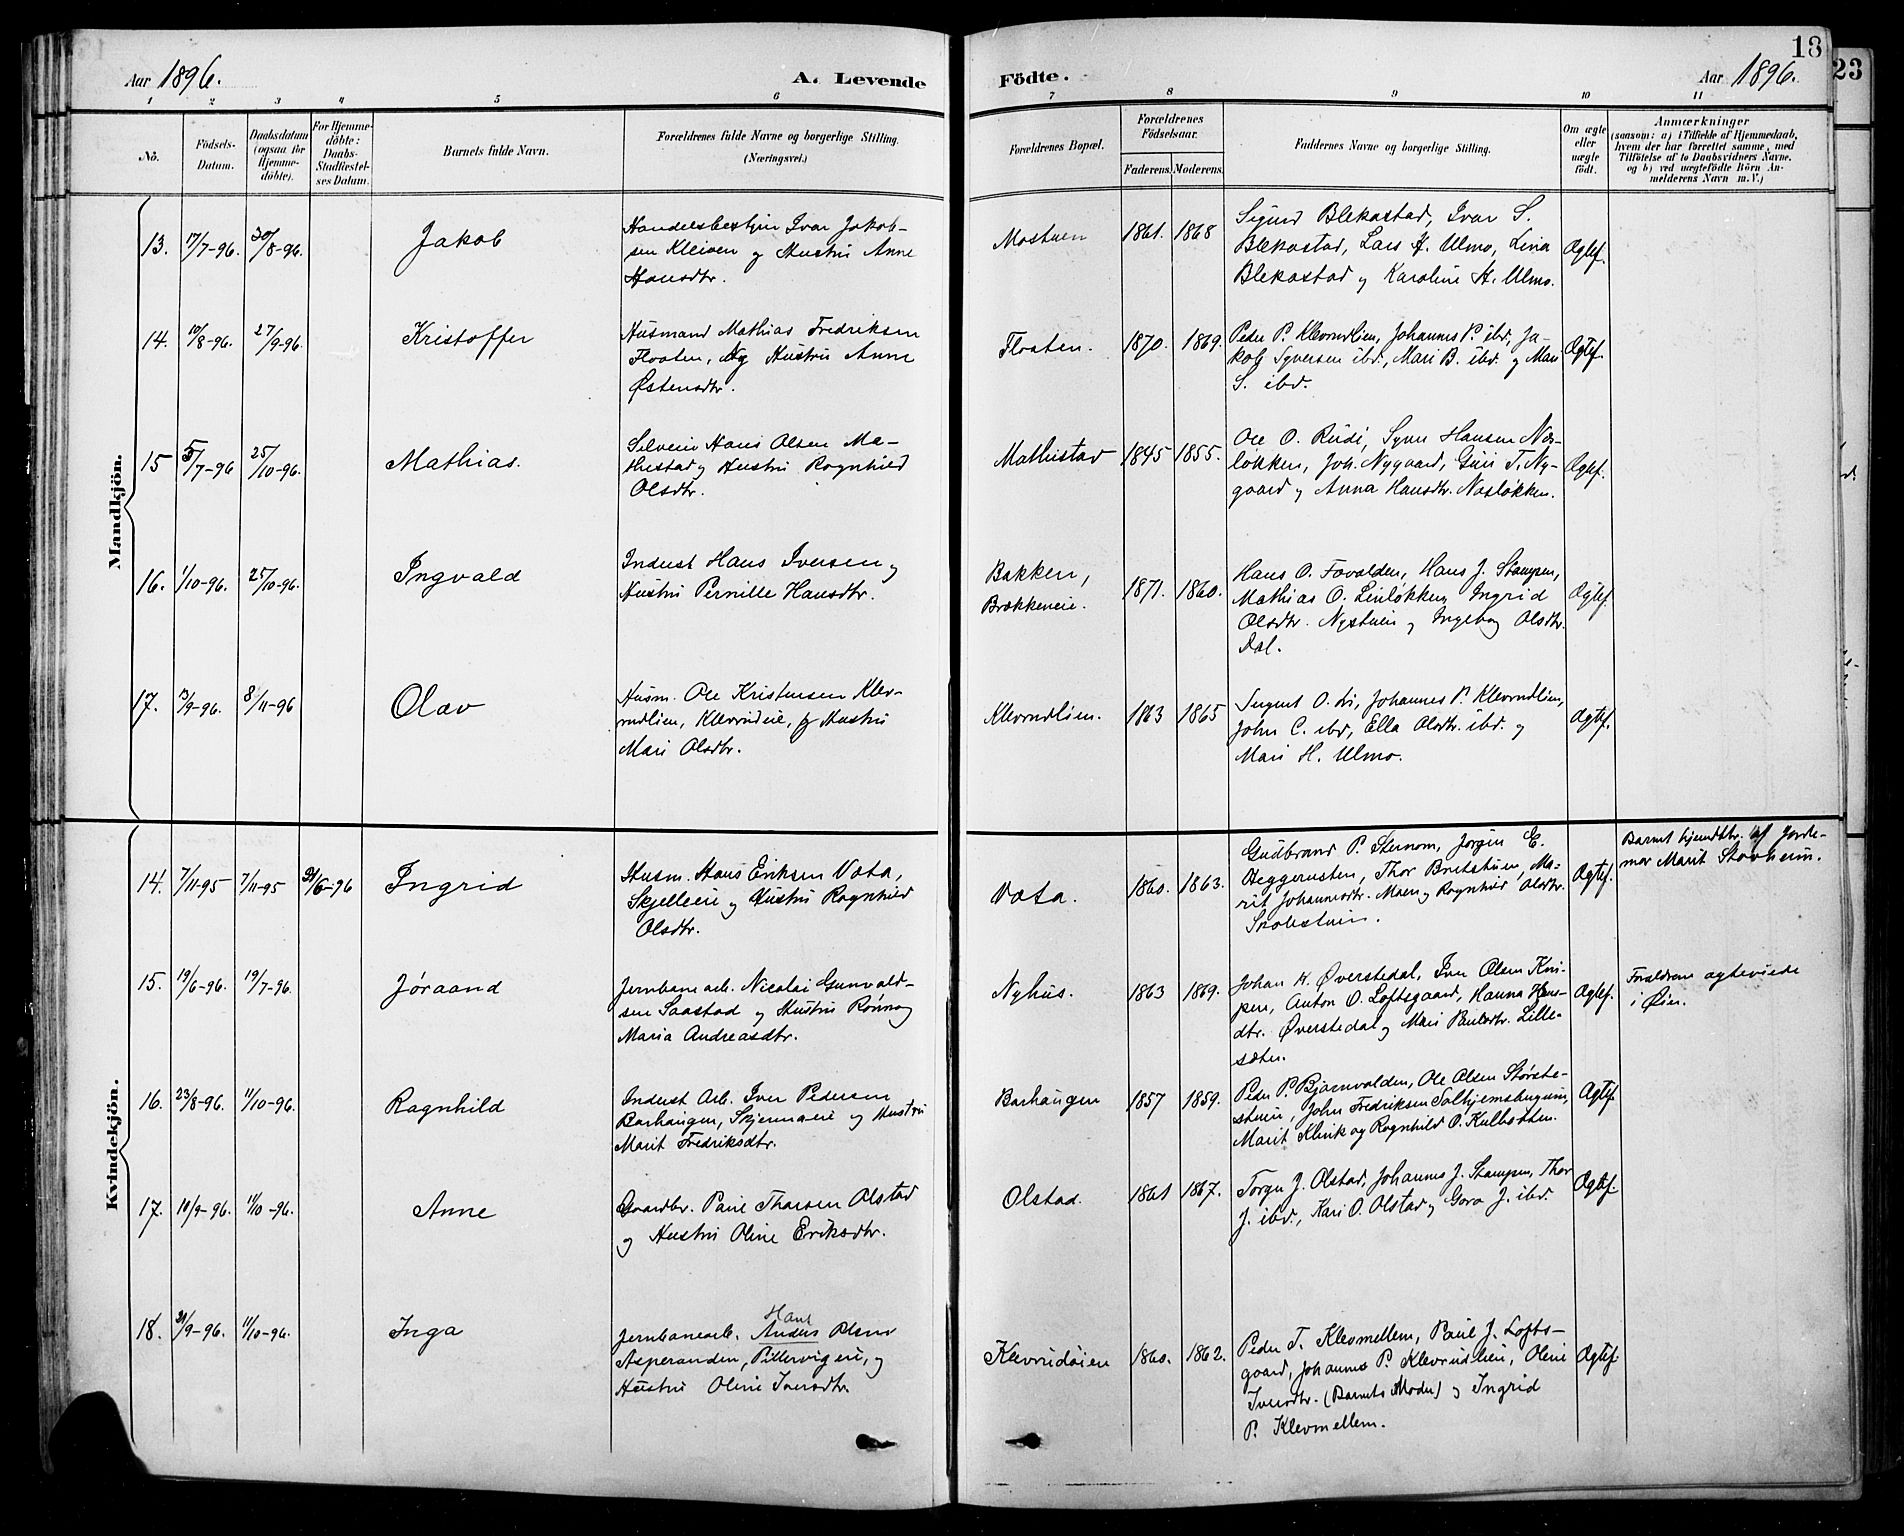 Aar 1896.
A. Levende
Födte.
Aar 1896.
18
23
1 2 3 4 5 6 7 8 9 10 11
No.
Födsels-
Datum.
Daabsdatum
(ogsaa for
Hjemme-
döbte).
For Hjemme-
döbte:
Daabs-
Stadfæstel-
ses Datum.
Barnets fulde Navn.
Forældrenes fulde Navne og borgerlige Stilling.
(Næringsvei.)
Forældrenes Bopæl.
Forældrenes
Födselsaar.
Faderens. Moderens.
Faddernes Navne og borgerlige Stilling.
Om ægte
eller
uægte
födt.
Anmærkninger
(saasom: a) i Tilfælde af Hjemmedaab,
hvem der har forrettet samme, med
Tilföielse af to Daabsvidners Navne.
og b) ved uægtefödte Börn An-
melderens Navn m. V.)
Mandkjön.
13. 17/7-96. 30/8-96.
Jakob
Handelsbestyrer Ivar Jakob-
sen Kleiven og Hustru Anne
Hansdtr.
Mostuen
1861. 1868
Sigurd Blekastad, Ivar S.
Blekastad, Lars H. Ulmo, Lina
Blekastad og Karoline H. Ulmo.
Ægtef.
14. 10/8-96. 27/9-96.
Kristoffer
Husmand Mathias Fredriksen
Flaaten, og Hustru Anne
Østensdtr.
Flaaten.
1870. 1869.
Peder P. Klevrudlien, Johannes P. ibd, Ja-
kob Syversen ibd., Mari B. ibd. og Mari
S. ibd.
Ægtef.
15 5/7-96 25/10-96.
Mathias.
Selveier Hans Olsen Ma-
thistad og Hustru Ragnhild
Olsdtr.
Mathistad
1845 1855.
Ole O. Rudi, Syver Hansen Nos-
løkken, Joh. Nygaard, Guri T. Ny-
gaard og Anna Hansdtr. Nosløkken.
Ægtef.
16. 1/10-96. 25/10-96.
Ingvald
Inderst Hans Iversen og
Hustru Pernille Hansdtr.
Bakken,
Brækkeneie.
1871. 1860.
Hans O. Favolden, Hans J. Stampen,
Mathias O. Linløkken, Ingrid
Olsdtr. Nystuen og Ingeborg Olsdtr.
Dal.
Ægtef.
17. 13/9-96. 8/11-96
Olav
Husm. Ole Kristensen Klev-
rudlien, Klevrudeie, og Hustru
Mari Olsdtr.
Klevrudlien.
1863 1865
O. Li, Johannes P. Klevrudlien,
John C. ibd, Ella Olsdtr. ibd. og
Mari H. Ulmo.
Ægtef.
Kvindekjön.
14. 7/11-95 7/11-95 21/6-96
Ingrid
Husm. Hans Eriksen Vata,
Skjelleeie og Hustru Ragnhild
Olsdtr.
Vata.
1860. 1863.
Gudbrand P. Sternom, Jørgen E.
Heggerusten, Thor Bratstuen, Ma-
rit Johannesdtr. Moen og Ragnhild Olsdtr.
Ægtef.
Barnet hjemdbt. af Jorde-
mor Marit Stavheim.
15. 19/6-96. 19/7-96.
Jøraand
Jernbanearb. Nicolai Gunvald-
sen Saastad og Hustru Rønnog
Maria Andreasdtr.
Nyhus.
1863 1869.
Johan K. Øverstedal, Iver Olsen Kni-
pen, Anton O. Loftsgaard, Hanna Hans-
dtr. Øverstedal og Mari Paulsdtr. Lille-
sæter.
Ægtef.
Forældrene ægteviede
i Øier.
16. 23/8-96. 11/10-96.
Ragnhild
Inderst Arb. Iver Pedersen
Barhaugen, Skjennaeie og Hustru
Marit Fredriksdtr.
Barhaugen
1857 1859.
Peder P. Bjørnvolden, Ole Olsen Største-
stuen, John Fredriksen Solhjemshaugen,
Marit Klevik og Ragnhild O. Kulbotten.
Ægtef.
17. 10/9-96. 11/10-96.
Anne
Gaardbr. Paul Thorsen Olstad
og Hustru Oline Eriksdtr.
Olstad.
1861 1867.
Torger J. Olstad, Johannes J. Stampen, Thor
J. ibd., Kari O. Olstad og Goro J. ibd
Ægtef.
18. 21/9-96. 11/10-96.
Inga
Hans
Jernbanearb. Anders Olsen
Asperanden, Pillarvigeie, og
Hustru Oline Iversdtr.
Klevrudøien
1860. 1862.
Peder T. Klevmellem, Paul J. Lofts-
gaard, Johannes P. Klevrudlien, Oline
Iversdtr. (Barnets Moder) og Ingrid
P. Klevmellem.
Ægtef.